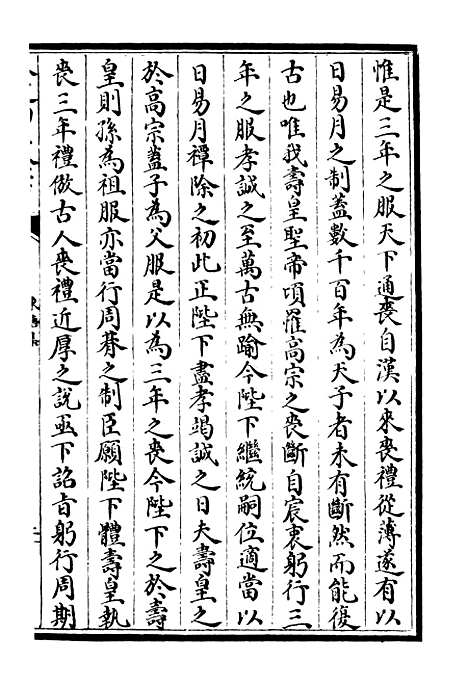 惟是三年之服天下通喪自漢以來喪禮從薄遂有以
日易月之制蓋數千百年為天子者未有斷然而能復
古也唯我壽皇聖帝頃罹高宗之喪斷自宸衷躬行三
年之服孝誠之至萬古無踰今陛下繼統嗣位適當以
日易月禫除之初此正陛下盡孝竭誠之日夫壽皇之
於高宗蓋子為父服是以為三年之喪今陛下之於壽
皇則孫為祖服亦當行周朞之制臣願陛下體壽皇執
喪三年禮倣古人喪禮近厚之說亟下詔旨躬行周期